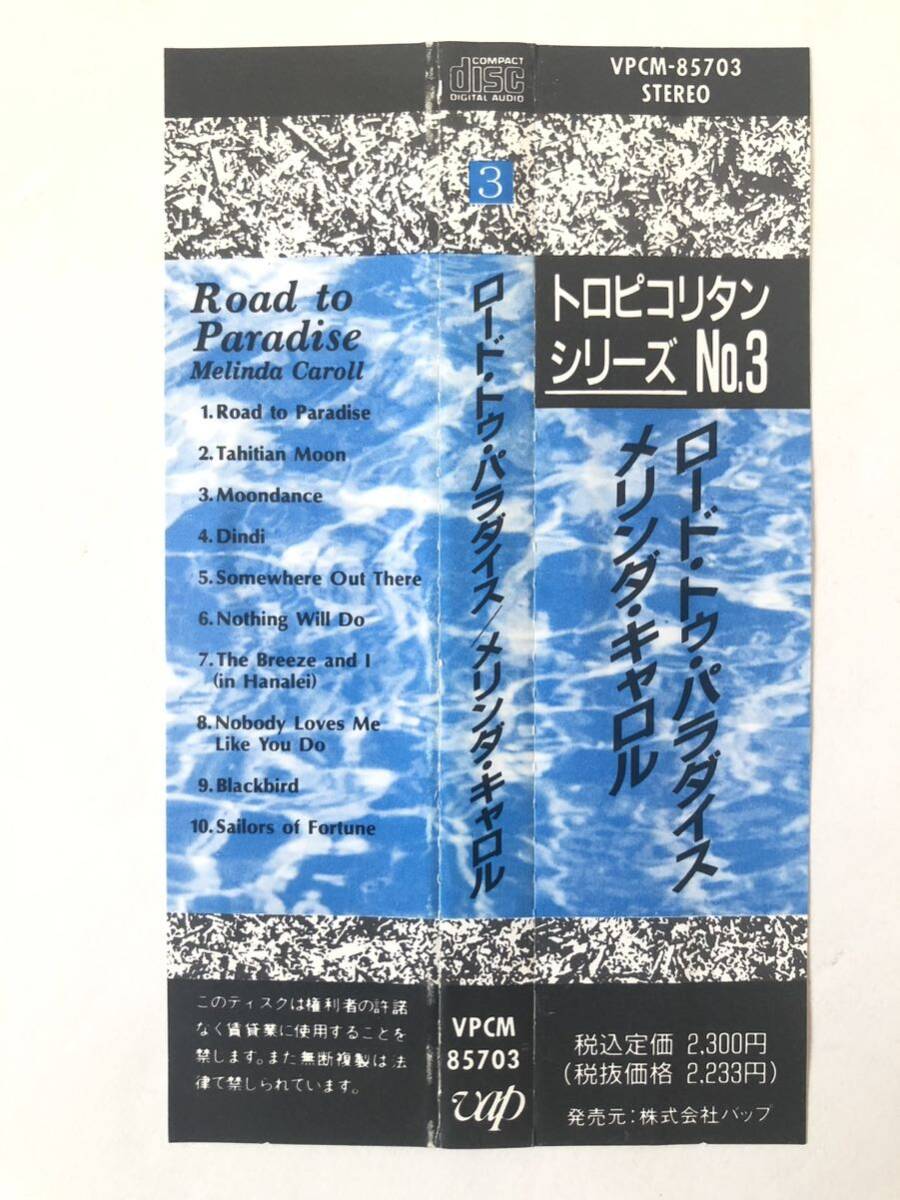 Road to
Paradise
Melinda Caroll
1. Road to Paradise
2. Tahitian Moon
3. Moondance
4. Dindi
5. Somewhere Out There
6. Nothing Will Do
7. The Breeze and I
(in Hanalei)
8. Nobody Loves Me
Like You Do
9. Blackbird
10. Sailors of Fortune
このディスクは権利者の許諾
なく賃貸業に使用することを
禁じます。また無断複製は法
律で禁じられています。
COMPACT
disc
DIGITAL AUDIO
3
ロード・トゥ・パラダイス/メリンダ・キャロル
VPCM
85703
vap
VPCM-85703
STEREO
トロピコリタン
シリーズ No.3
ロード・トゥ・パラダイス
メリンダ・キャロル
税込定価 2,300円
(税抜価格 2,233円)
発売元:株式会社バップ